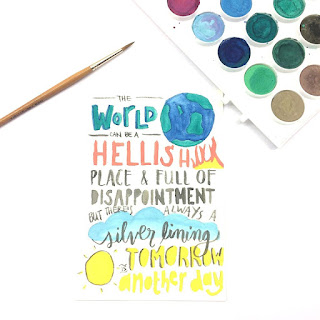 THE
WORLD
CAN BE A
HELLISH
PLACE & FULL OF
DISAPPOINTMENT
BUT THERE IS ALWAYS A
silver lining
TOMORROW
IS
another day